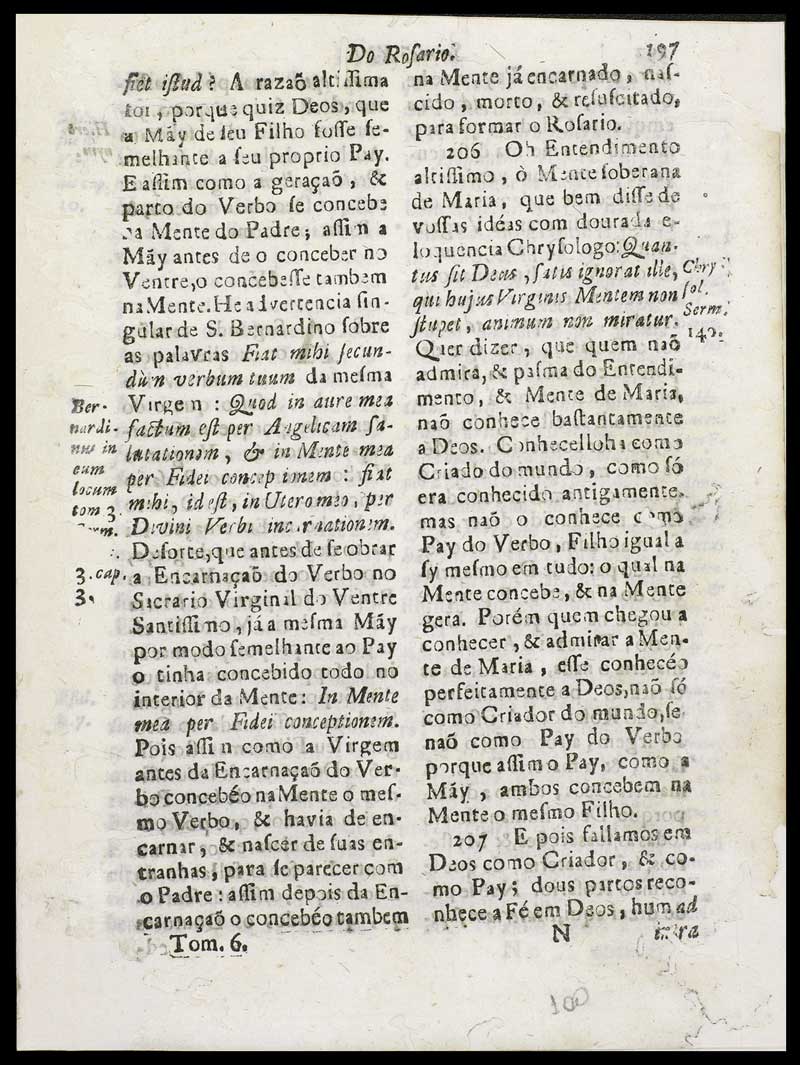 Do Roſario.
197
fiet iſtud? A razaõ altiſſima
foi, porque quiz Deos, que
a Mãy de ſeu Filho foſſe ſe-
melhante a ſeu proprio Pay.
E aſſim como a geraçaõ, &
parto do Verbo ſe concebe
na Mente do Padre; aſſim a
Mãy antes de o conceber no
Ventre, o concebeſſe tambem
na Mente. He advertencia ſin-
gular de S. Bernardino ſobre
as palavras Fiat mihi ſecun-
dùm verbum tuum da meſma
Virgem: Quod in aure mea
factum eſt per Angelicam ſa-
lutationem, & in Mente mea
per Fidei conceptionem: fiat
mihi, id eſt, in Utero meo, per
Divini Verbi incarnationem.
Deſorte, que antes de ſe obrar
a Encarnaçaõ do Verbo no
Sacrario Virginal do Ventre
Santiſſimo, já a meſma Mãy
por modo ſemelhante ao Pay
o tinha concebido todo no
interior da Mente: In Mente
mea per Fidei conceptionem.
Pois aſſim como a Virgem
antes da Encarnaçaõ do Ver-
bo concebéo na Mente o meſ-
mo Verbo, & havia de en-
carnar, & naſcer de ſuas en-
tranhas, para ſe parecer com
o Padre: aſſim depois da En-
carnaçaõ o concebéo tambem
Tom. 6.
Ber-
nardi-
nus in
eum
locum
tom 3.
Serm.
3. cap.
3.
na Mente já encarnado, naſ-
cido, morto, & reſuſcitado,
para formar o Roſario.
206 Oh Entendimento
altiſſimo, ò Mente ſoberana
de Maria, que bem diſſe de
voſſas idéas com dourada e-
loquencia Chryſologo: Quan-
tus ſit Deus, ſatis ignorat ille,
qui hujus Virginis Mentem non
ſtupet, animum non miratur.
Quer dizer, que quem naõ
admira, & paſma do Entendi-
mento, & Mente de Maria,
naõ conhece baſtantemente
a Deos. Conhecelloha como
Criado do mundo, como ſó
era conhecido antigamente.
mas naõ o conhece como
Pay do Verbo, Filho igual a
ſy meſmo em tudo: o qual na
Mente concebe, & na Mente
gera. Porém quem chegou a
conhecer, & admirar a Men-
te de Maria, eſſe conhecéo
perfeitamente a Deos, naõ ſó
como Criador do mundo, ſe
naõ como Pay do Verbo
porque aſſim o Pay, como a
Mãy, ambos concebem na
Mente o meſmo Filho.
207 E pois fallamos em
Deos como Criador, & co-
mo Pay; dous partos reco-
nhece a Fé em Deos, hum ad
N
intra
Chry
ſol.
Serm.
140.